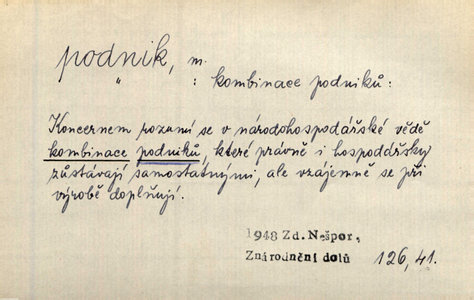 podnik, m.
" : kombinace podniků:
Koncernem rozumí se v národohospodářské vědě
kombinace podniků, které právně i hospoddřsky
zůstávají samostatnými, ale vzájemně se při
výrobě doplňují.
1948 Zd. Nešpor,
Znárodnění dolů 126,41.